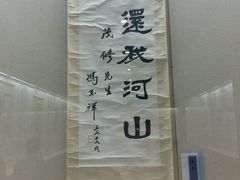 還我河山
茂修先生
馮玉祥